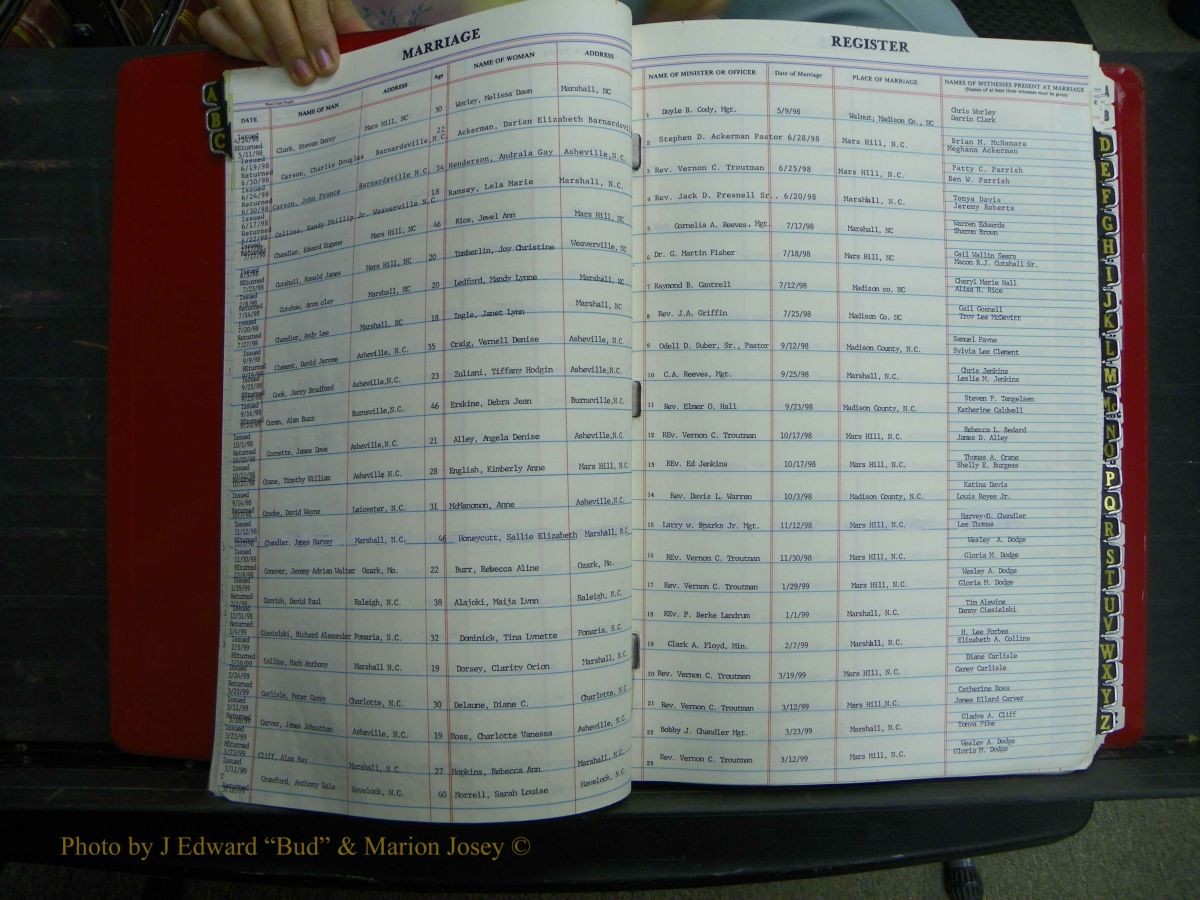 MARRIAGE
DATE NAME OF MAN ADDRESS Age NAME OF WOMAN ADDRESS
Issued 4/24/98 Returned 5/11/98 Clark, Steven Darcy Mars Hill, NC 30 Worley, Melissa Dawn Marshall, NC
Issued 6/19/98 Returned 6/30/98 Carson, Charlie Douglas Barnardsville, N.C. 22 Ackerman, Darian Elizabeth Barnardsvil
Issued 6/24/98 Returned 6/30/98 Carson, John France Barnardsville N.C. 34 Henderson, Andrala Gay Asheville, N.C.
Issued 6/17/98 Returned 6/22/98 Collins, Randy Phillip Jr. Weaverville N.C. 18 Ramsey, Lela Marie Marshall, N.C.
Chandler, Edward Eugene Mars Hill, NC 46 Rice, Jewel Ann Mars Hill, NC
Returned 7/23/98 Cutshall, Ronald James Mars Hill, NC 20 Tomberlin, Joy Christine Weaverville, NC
Issued Returned 7/14/98 Cutshaw, Aron clay Marshall, NC 20 Ledford, Mandy Lynne Marshall, NC
Issued 7/20/98 Returned 7/27/98 Chandler, Andy Lee Marshall, NC 18 Ingle, Janet Lynn Marshall, NC
Issued 9/9/98 Returned Clement, David Jerome Asheville, N.C. 35 Craig, Vernell Denise Asheville, N.C.
Issued 9/25/98 Cook, Jerry Bradford Asheville,N.C. 23 Zuliani, Tiffany Hodgin Asheville, N.C.
Issued 9/16/98 Coren, Alan Buzz Burnsville,N.C. 46 Erskine, Debra Jean Burnsville,N.C.
Issued 10/1/98 Returned 10/20/98 Cornette, James Dove Asheville,N.C. 21 Alley, Angela Denise Asheville,N.C.
Issued 10/12/98 Crane, Timothy William Asheville N.C. 28 English, Kimberly Anne Mars Hill, N.C.
Issued 9/14/98 Returned Crooke, David Wayne Leicester, N.C. 31 McManomon, Anne Asheville,N.C.
Issued 11/12/98 Chandler, James Harvey Marshall, N.C. 46 Honeycutt, Sallie Elizabeth Marshall, N.C.
Issued 11/30/98 Returned 12/8/98 Conover, Jeremy Adrian Walter Ozark, Mo. 22 Burr, Rebecca Aline Ozark, Mo.
Issued 1/19/99 Returned Carrish, David Paul Raleigh, N.C. 38 Alajoki, Maija Lynn Raleigh, N.C.
12/31/98 Returned 1/4/99 Ciesielski, Richard Alexander Pomaria, S.C. 32 Dominick, Tina Lynette Pomaria, S.C.
Issued 2/5/99 Returned 2/10/99 Collins, Mark Anthony Marshall N.C. 19 Dorsey, Clarity Orion Marshall, N.C.
2/24/99 Returned 3/23/99 Carlisle, Peter Carey Charlotte, N.C. 30 DeLaune, Diane C. Charlotte, N.C
Issued 3/11/99 Returned 3/16/99 Carver, James Johnathan Asheville, N.C. 19 Ross, Charlotte Vanessa Asheville, N.C.
Issued 3/23/99 Returned 3/23/99 Cliff, Alan Ray Marshall, N.C. 27 Hopkins, Rebecca Ann Marshall, N.C.
Issued 3/11/99 Returned 3/16/99 Crawford, Anthony Dale Havelock, N.C. 40 Norrell, Sarah Louise Havelock, N.C.
REGISTER
NAME OF MINISTER OR OFFICER Date of Marriage PLACE OF MARRIAGE NAMES OF WITNESSES PRESENT AT MARRIAGE
(Names of at least three witnesses must be given)
1 Doyle B. Cody, Mgt. 5/9/98 Walnut, Madison Co., NC Chris Worley
Darrin Clark
2 Stephen D. Ackerman Pastor 6/28/98 Mars Hill, N.C. Brian M. McNamara
Meghann Ackerman
3 Rev. Vernon C. Troutman 6/25/98 Mars Hill, N.C. Patty C. Parrish
Ben W. Parrish
4 Rev. Jack D. Presnell Sr.. 6/20/98 Marshall, N.C. Tonya Davis
Jeremy Roberts
5 Cornelia A. Reeves, Mgt. 7/17/98 Marshall, NC Warren Edwards
Sharon Brown
6 Dr. G. Martin Fisher 7/18/98 Mars Hill, NC Gail Wallin Sears
Macon R.J. Cutshall Sr.
7 Raymond B. Cantrell 7/12/98 Madison co. NC Cheryl Marie Hall
Alisa H. Rice
8 Rev. J.A. Griffin 7/25/98 Madison Co. NC Gail Gosnell
Troy Lee McDevitt
9 Odell D. Suber, Sr., Pastor 9/12/98 Madison County, N.C. Samuel Payne
Sylvia Lee Clement
10 C.A. Reeves, Mgt. 9/25/98 Marshall, N.C. Chris Jenkins
Leslie M. Jenkins
11 Rev. Elmer O. Hall 9/23/98 Madison County, N.C. Steven P. Tengelsen
Katherine Caldwell
12 REv. Vernon C. Troutman 10/17/98 Mars Hill, N.C. Rebecca L. Bedard
James D. Alley
13 REv. Ed Jenkins 10/17/98 Mars Hill, N.C. Thomas A. Crane
Shelly E. Burgess
14 Rev. Davis L. Warren 10/3/98 Madison County, N.C. Katina Davis
Louis Reyes Jr.
15 Larry w. Sparks Jr. Mgt. 11/12/98 Mars Hill, N.C. Harvey D. Chandler
Lee Thomas
16 REv. Vernon C. Troutman 11/30/98 Mars HIll, N.C. Wesley A. Dodge
Gloria M. Dodge
17 Rev. Vernon C. Troutman 1/29/99 Mars Hill, N.C. Wesley A. Dodge
Gloria M. Dodge
18 REv. P. Berke Landrum 1/1/99 Marshall, N.C. Tim Alevine
Danny Ciesielski
19 Clark A. Floyd, Min. 2/7/99 Marshall, N.C. H. Lee Forbes
Elizabeth A. Collins
20 Rev. Vernon C. Troutman 3/19/99 Mars HIll, N.C. Diane Carlisle
Carey Carlisle
21 Rev. Vernon C. Troutman 3/12/99 Mars Hill,N.C. Catherine Ross
James Ellard Carver
22 Bobby J. Chandler Mgt. 3/23/99 Marshall, N.C. Gladys A. Cliff
Tonya Pike
23 Rev. Vernon C. Troutman 3/12/99 Mars Hill, N.C. Wesley A. Dodge
Gloria M. Dodge
A
B
C
A
B
D
E
F
G
H
I
J
K
L
M
Mc
N
O
P
Q
R
S
T
U
V
W
X
Y
Z
Photo by J Edward “Bud” & Marion Josey ©